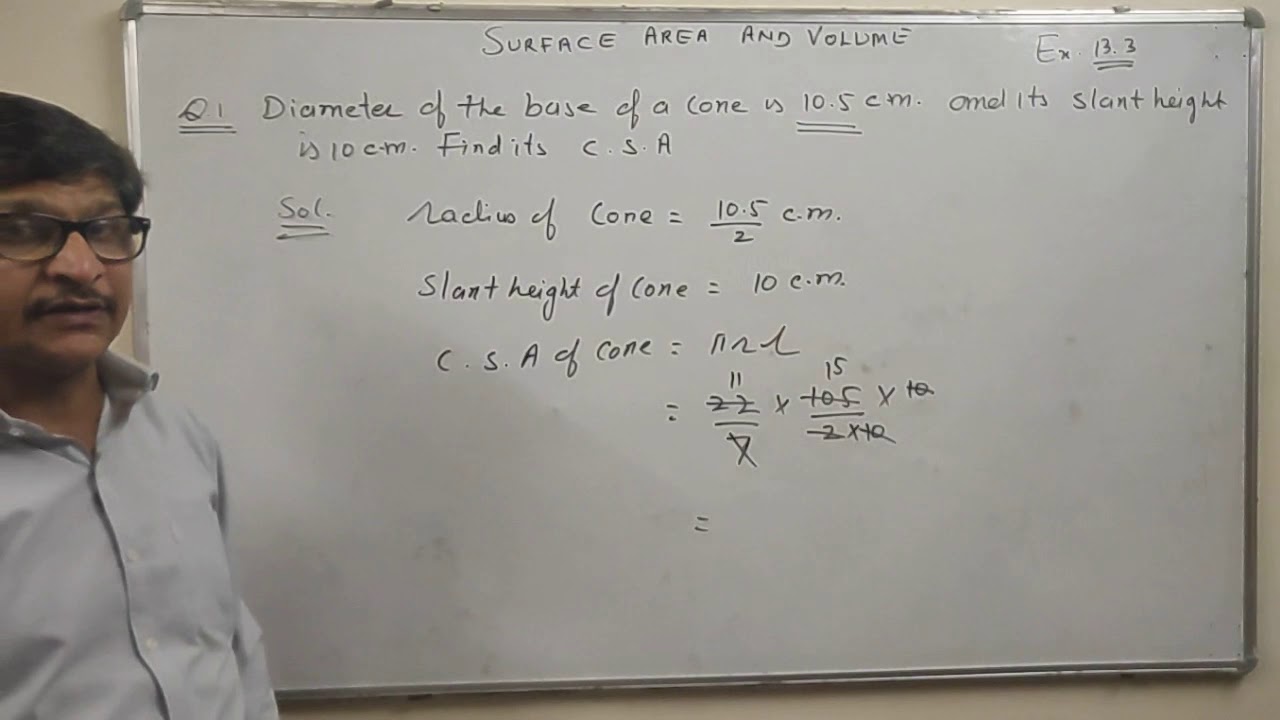 SURFACE AREA AND VOLUME
Ex. 13.3
Q1 Diameter of the base of a Cone is 10.5 cm. and its slant height
is 10 c.m. Find its C.S.A
Sol. radius of Cone = 10.5/2 c.m.
Slant height of Cone = 10 c.m.
C.S.A of Cone = πrl
11 15
= 22/7 × 105/2×10 × 10
=